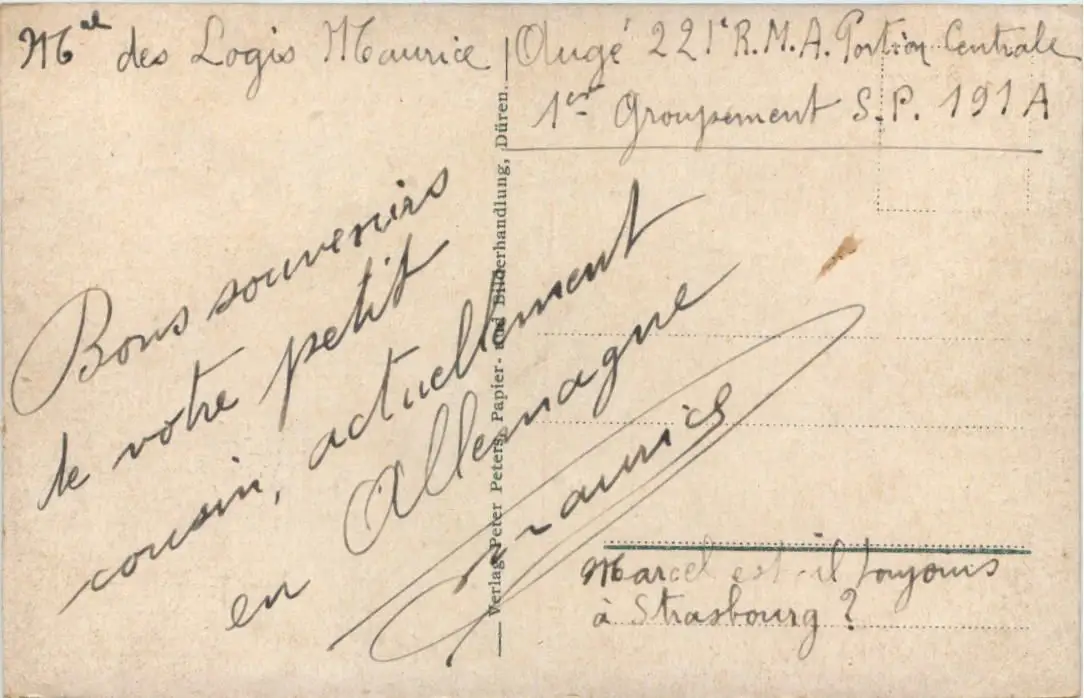 Mal des Logis Maurice Augé 221e R.M.A. Portion Centrale
1er Groupement S.P. 191A
Bons souvenirs
de votre petit
cousin, actuellement
en Allemagne
Maurice
Marcel est-il toujours
à Strasbourg ?
Verlag Peter Peters, Papier- und Bilderhandlung, Düren.